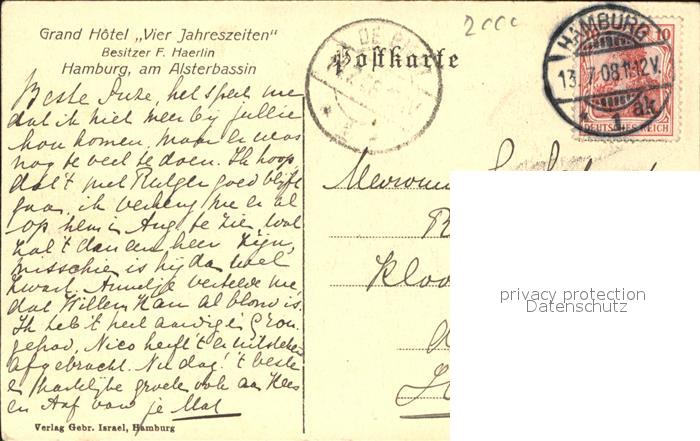 Grand Hôtel „Vier Jahreszeiten"
Besitzer F. Haerlin
Hamburg, am Alsterbassin
Postkarte
2000
DE BILT
HAMBURG
13.7.08.11-12V.
* 1 ak
10 10
DEUTSCHES REICH
Beste Suze, het speet me
dat ik niet meer bij jullie
kon komen, maar er was
nog te veel te doen. Ik hoop
dat 't met Rutger goed blijft
gaan, ik verheug me er al
op hem in Aug. te zien, wat
zal 't dan een heer zijn,
misschien is hij dan wel
zwart. Annetje vertelde me
dat Willem Han al blond is.
Ik heb 't heel aardig in Gron.
gehad, Nico heeft 't er uitstekend
afgebracht. Nu dag! 't beste
en hartelijke groeten ook aan Kees
en Aaf van je Mal
Mevrouw
Kloo
privacy protection
Datenschutz
Verlag Gebr. Israel, Hamburg